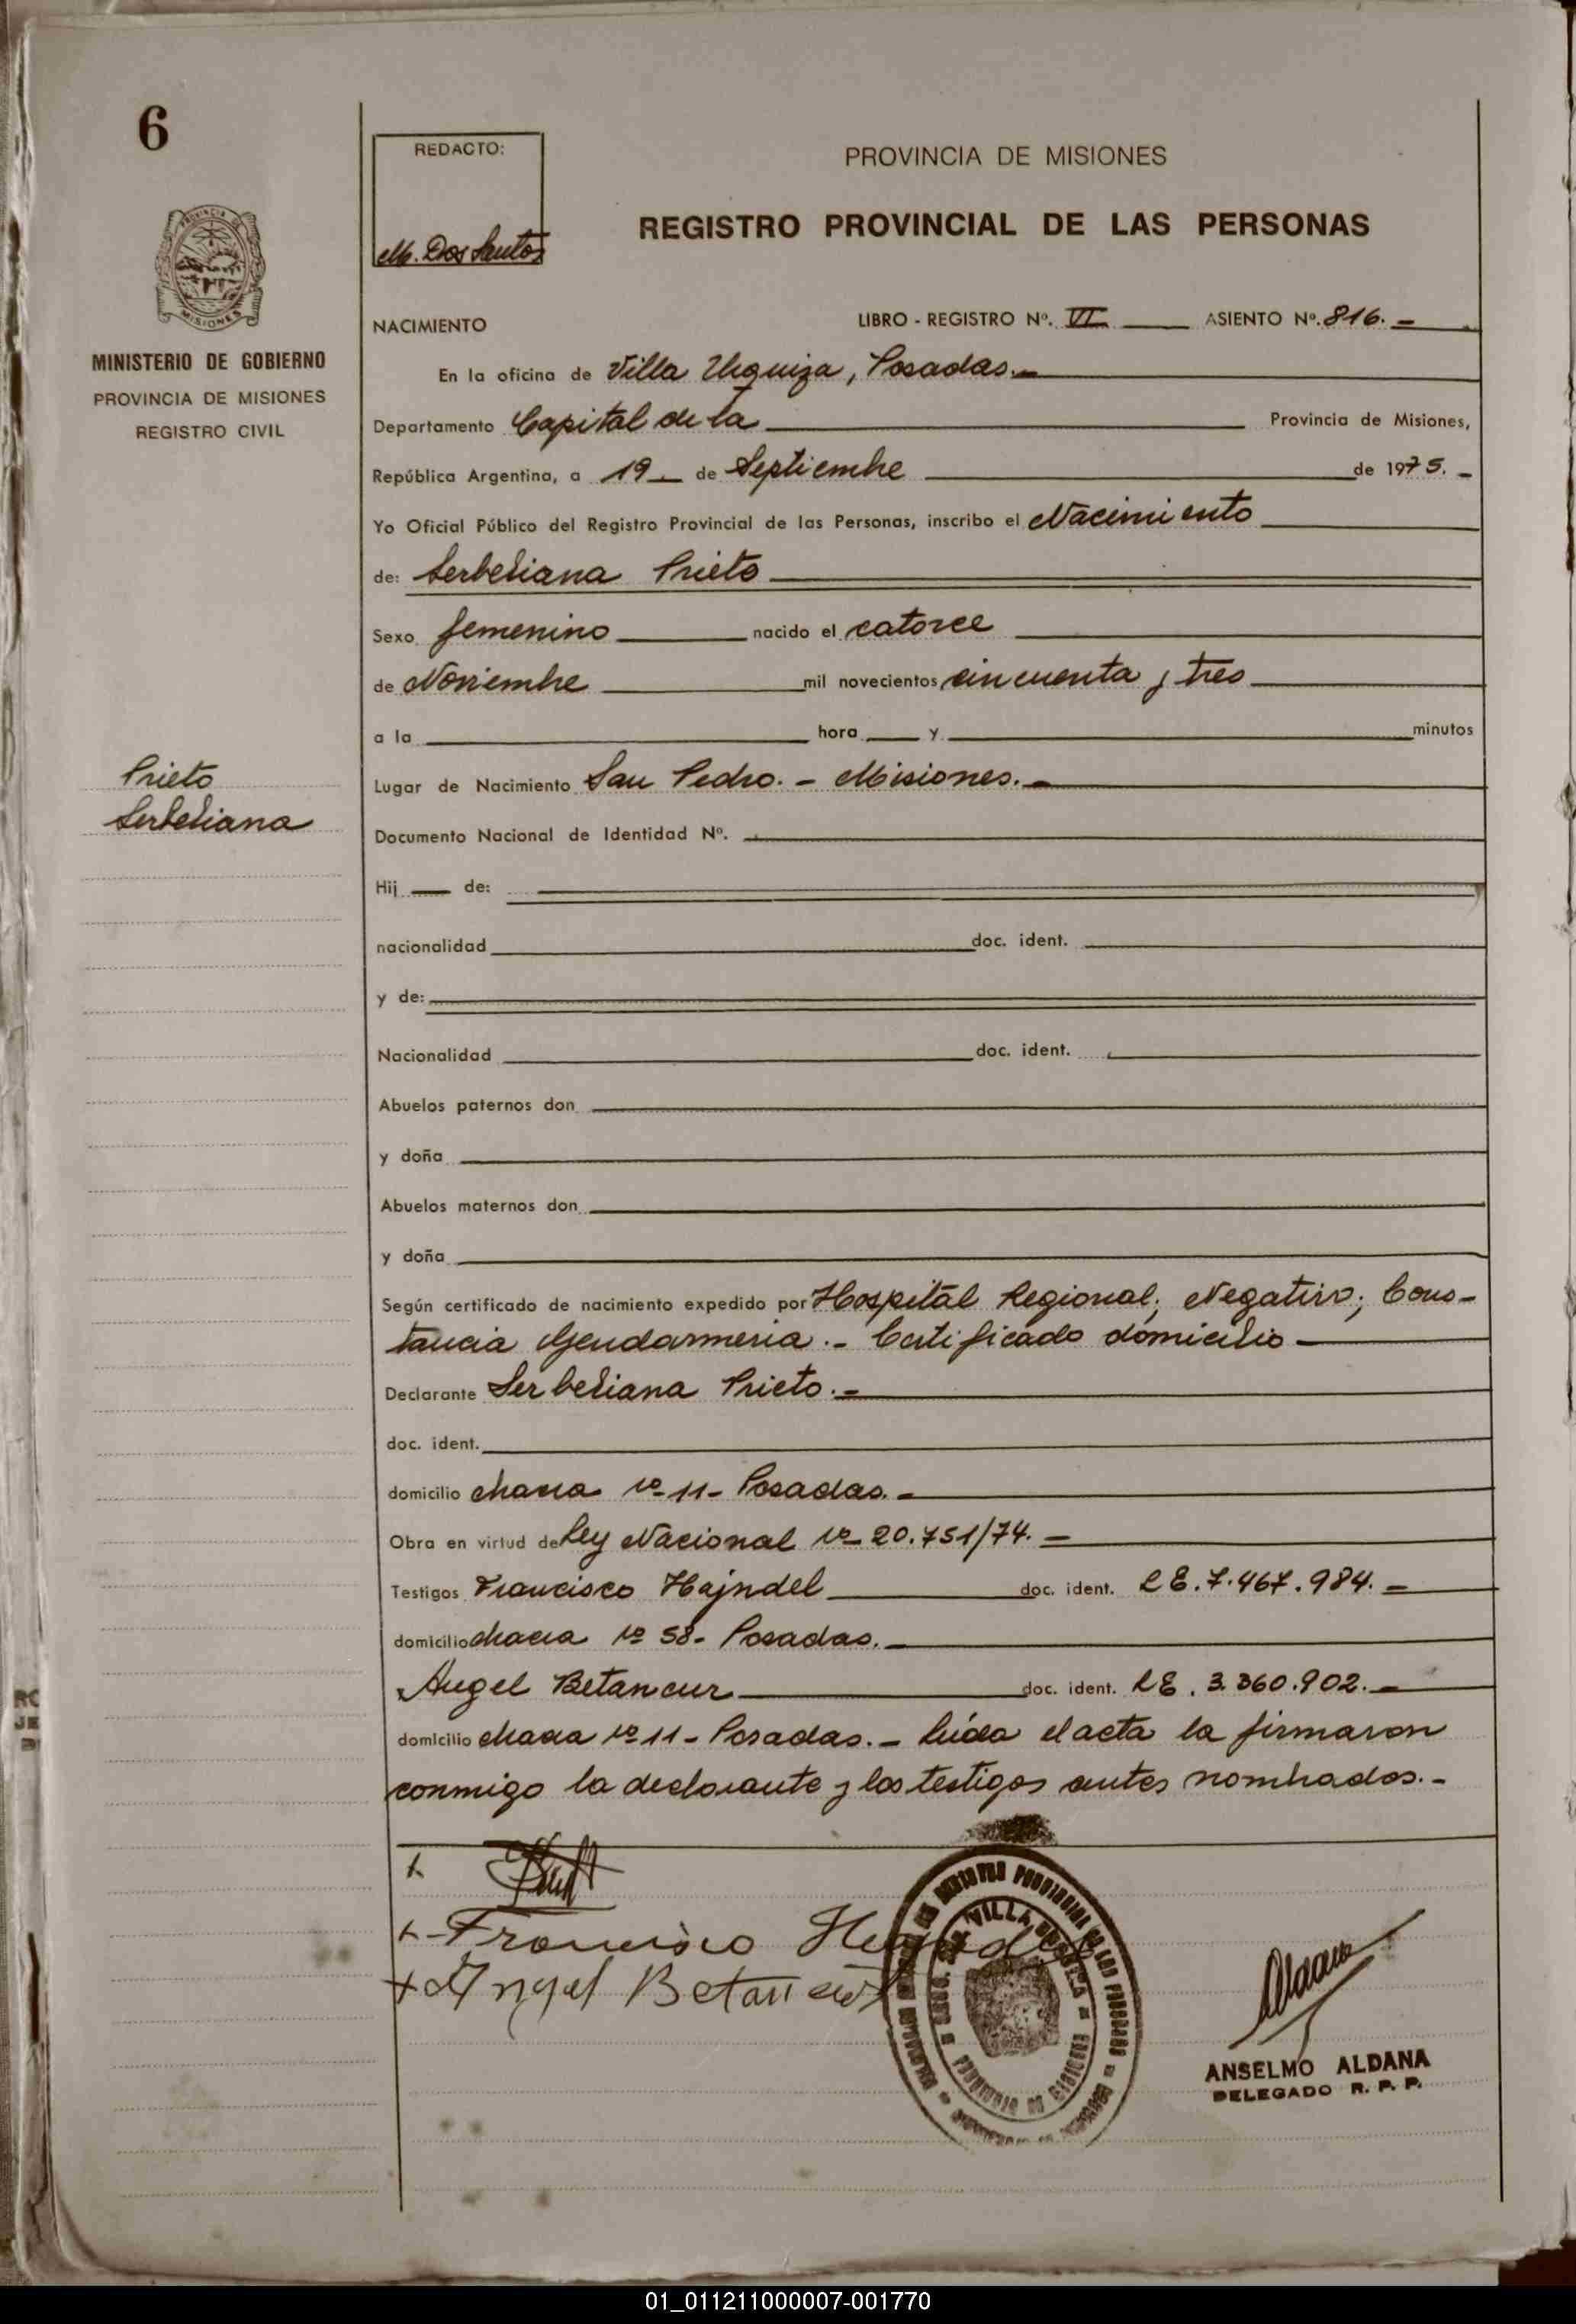 6
REDACTO:
M. Dos Santos
PROVINCIA DE MISIONES
REGISTRO PROVINCIAL DE LAS PERSONAS
PROVINCIA DE
MISIONES
MINISTERIO DE GOBIERNO
PROVINCIA DE MISIONES
REGISTRO CIVIL
NACIMIENTO LIBRO - REGISTRO Nº. VI ASIENTO Nº. 816. -
En la oficina de Villa Urquiza, Posadas. -
Departamento Capital de la Provincia de Misiones,
República Argentina, a 19 - de Septiembre de 1975. -
Yo Oficial Público del Registro Provincial de las Personas, inscribo el Nacimiento
de: Serbeliana Prieto
Sexo femenino nacido el catorce
de Noviembre mil novecientos cincuenta y tres
a la hora y minutos
Prieto
Serbeliana
Lugar de Nacimiento San Pedro. - Misiones. -
Documento Nacional de Identidad Nº.
Hij de:
nacionalidad doc. ident.
y de:
Nacionalidad doc. ident.
Abuelos paternos don
y doña
Abuelos maternos don
y doña
Según certificado de nacimiento expedido por Hospital Regional; Negativo; Cons-
tancia Gendarmeria. - Certificado domicilio -
Declarante Serbeliana Prieto. -
doc. ident.
domicilio chacra Nº 11 - Posadas. -
Obra en virtud de Ley Nacional Nº 20.751/74. -
Testigos Francisco Hajndel doc. ident. LE. 7.467.984. -
domicilio chacra Nº 58 - Posadas. -
Angel Betancur doc. ident. LE. 3.360.902. -
domicilio chacra Nº 11 - Posadas. - Leída el acta la firmaron
conmigo la declarante y los testigos antes nombrados. -
Francisco
Angel Betancur
VILLA URQUIZA
PROVINCIA DE MISIONES
Aldana
ANSELMO ALDANA
DELEGADO R. P. P.
01_011211000007-001770